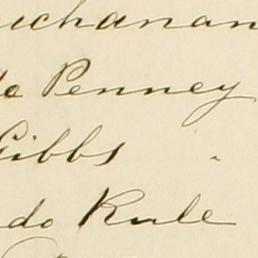 uchanan
do Penney
Gibbs "
do Rule